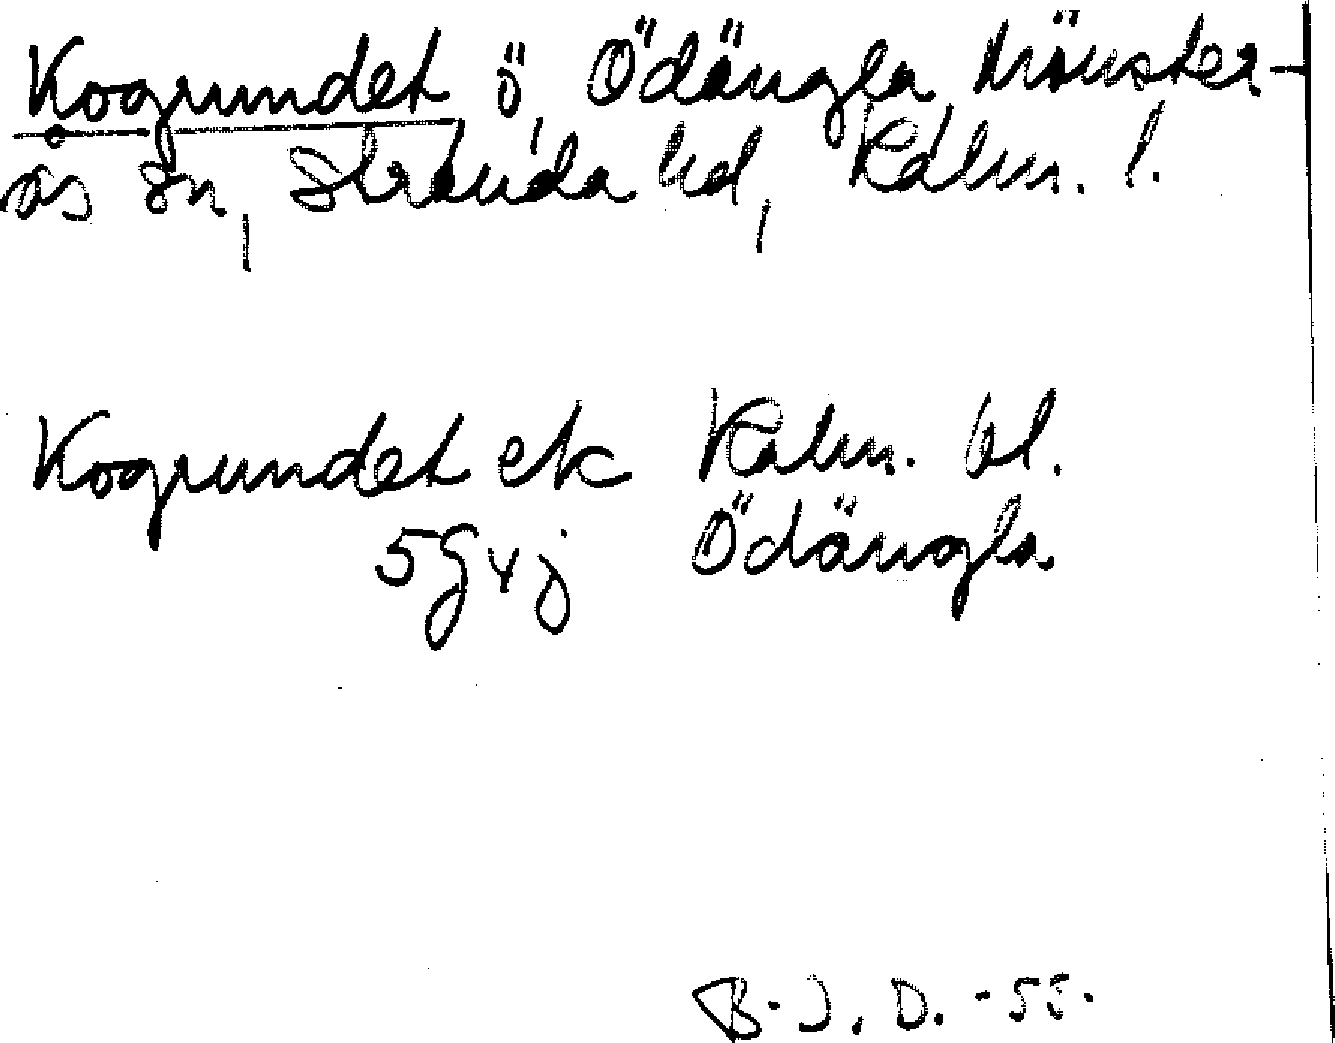 Kogrundet ö, Ödängla, Mönster-
ås sn, Stranda hd, Kalm. l.
Kogrundet ek Kalm. bl.
5G4j Ödängla
B.J.D. -55.